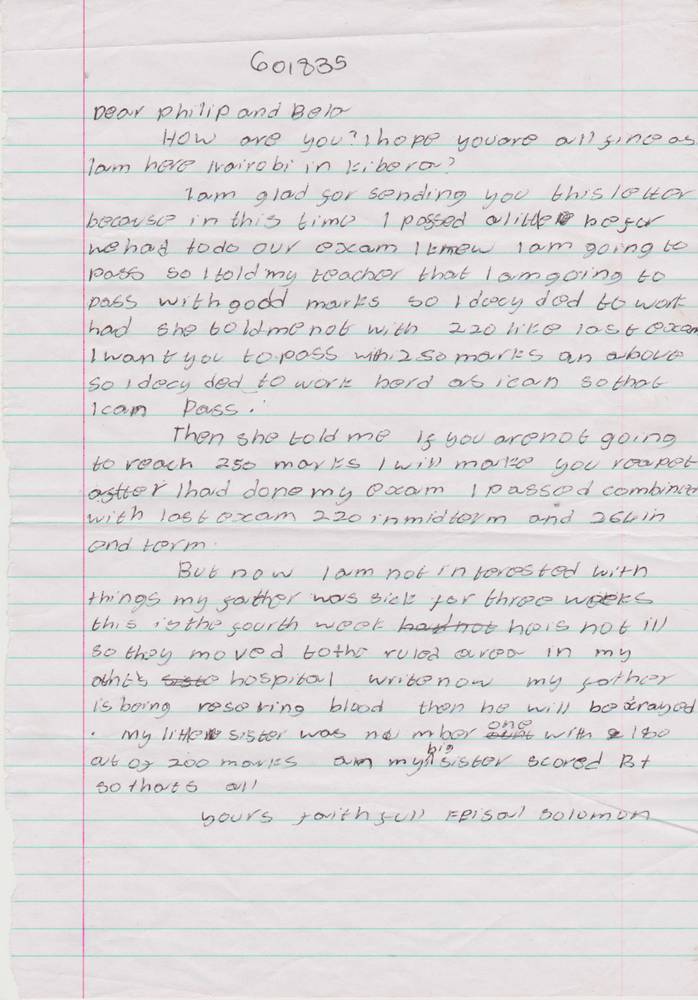 601835
Dear philip and Bela
How are you? I hope you are all fine as
I am here Nairobi in Kibera?
I am glad for sending you this letter
because in this time I passed a little befor
we had to do our exam I knew I am going to
pass so I told my teacher that I am going to
pass with good marks so I decy ded to work
had she told me not with 220 like last exam
I want you to pass with 250 marks an above
so I decy ded to work herd as i can so that
I can Pass.
Then she told me If you are not going
to reach 250 marks I will make you reapet
after I had done my exam I passed combinet
with last exam 220 in midterm and 264 in
end term.
But now I am not interested with
things my father was sick for three weeks
this is the fourth week had not he is not ill
so they moved to the ruled area in my
hospital write now my father
is being resering blood then he will be xrayed
. my little sister was nu mber one with 180
out of 200 marks am my big sister scored B+
so thats all
yours faithfull Feisal Solomon